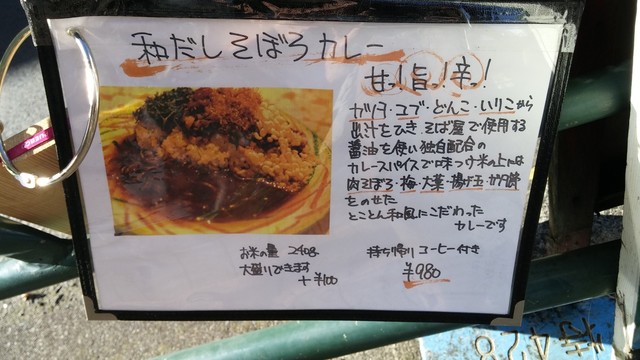 和だしそぼろカレー
甘！旨！辛！
カツオ・コブ・どんこ・いりこから
出汁をひき、そば屋で使用する
醤油を使い独自配合の
カレースパイスで味つけ米の上には
肉そぼろ・梅・大葉・揚げ玉
をのせた
とことん和風にこだわった
カレーです
お米の量 240g
大盛りできます
+¥100
持ち帰りコーヒー付き
¥980